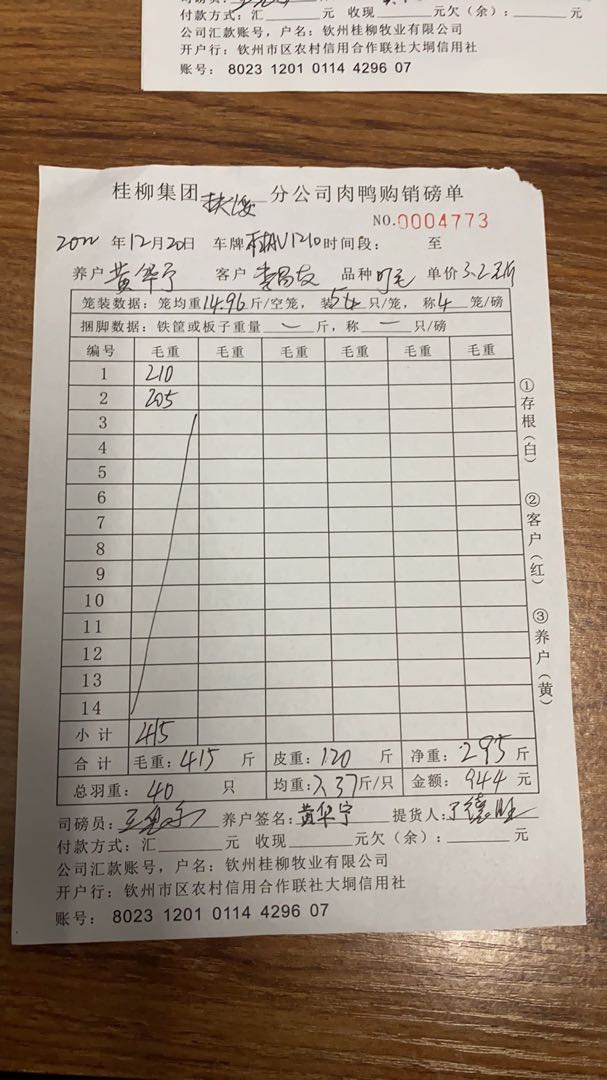 付款方式：汇 元 收现 元欠（余）： 元
公司汇款账号，户名：钦州桂柳牧业有限公司
开户行：钦州市区农村信用合作联社大垌信用社
账号： 8023 1201 0114 4296 07
桂柳集团 分公司肉鸭购销磅单
NO.0004773
年12月20日 车牌 时间段： 至
养户 黄华宁 客户 李昌友 品种 单价 3.2元/斤
笼装数据：笼均重14.96斤/空笼，装 只/笼，称4笼/磅
捆脚数据：铁筐或板子重量 — 斤，称 — 只/磅
编号 毛重 毛重 毛重 毛重 毛重 毛重
1 210
2 205
3
4
5
6
7
8
9
10
11
12
13
14
小计 415
合计 毛重：415 斤 皮重：120 斤 净重：295斤
总羽重：40 只 均重：7.37斤/只 金额：944元
司磅员： 养户签名：黄华宁 提货人：
付款方式：汇 元 收现 元欠（余）： 元
公司汇款账号，户名：钦州桂柳牧业有限公司
开户行：钦州市区农村信用合作联社大垌信用社
账号： 8023 1201 0114 4296 07
①存根（白）
②客户（红）
③养户（黄）